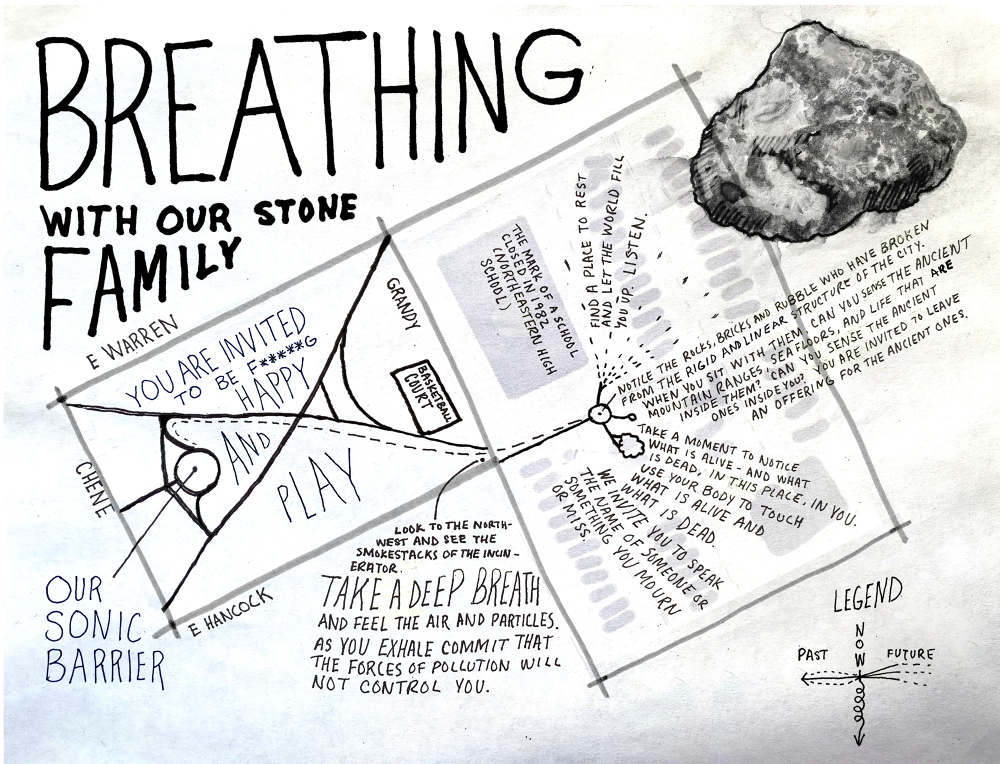 BREATHING
WITH OUR STONE
FAMILY
E WARREN
YOU ARE INVITED
TO BE F*****G
HAPPY
AND
PLAY
GRANDY
BASKETBALL
COURT
CHENE
OUR
SONIC
BARRIER
E HANCOCK
THE MARK OF A SCHOOL
CLOSED IN 1982
(NORTHEASTERN HIGH
SCHOOL)
FIND A PLACE TO REST
AND LET THE WORLD FILL
YOU UP. LISTEN.
NOTICE THE ROCKS, BRICKS AND RUBBLE WHO HAVE BROKEN
FROM THE RIGID AND LINEAR STRUCTURE OF THE CITY.
WHEN YOU SIT WITH THEM, CAN YOU SENSE THE ANCIENT
MOUNTAIN RANGES, SEA FLOORS, AND LIFE THAT ARE
INSIDE THEM? CAN YOU SENSE THE ANCIENT
ONES INSIDE YOU? YOU ARE INVITED TO LEAVE
AN OFFERING FOR THE ANCIENT ONES.
TAKE A MOMENT TO NOTICE
WHAT IS ALIVE - AND WHAT
IS DEAD, IN THIS PLACE, IN YOU.
USE YOUR BODY TO TOUCH
WHAT IS ALIVE AND
WHAT IS DEAD.
WE INVITE YOU TO SPEAK
THE NAME OF SOMEONE OR
SOMETHING YOU MOURN
OR MISS.
LOOK TO THE NORTH-
WEST AND SEE THE
SMOKESTACKS OF THE INCIN-
ERATOR.
TAKE A DEEP BREATH
AND FEEL THE AIR AND PARTICLES.
AS YOU EXHALE COMMIT THAT
THE FORCES OF POLLUTION WILL
NOT CONTROL YOU.
LEGEND
NOW
PAST
FUTURE